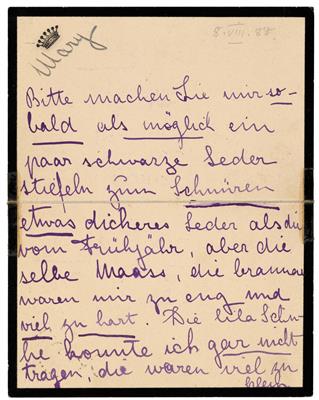 Mary
8.VIII.88.
Bitte machen Sie mir so-
bald als möglich ein
paar schwarze Leder
stiefeln zum Schnüren
etwas dicheres Leder als die
vom Frühjahr, aber die
selbe Maass, die braunen
waren mir zu eng und
viel zu hart. Die lila Schu-
he konnte ich gar nicht
tragen, die waren viel zu